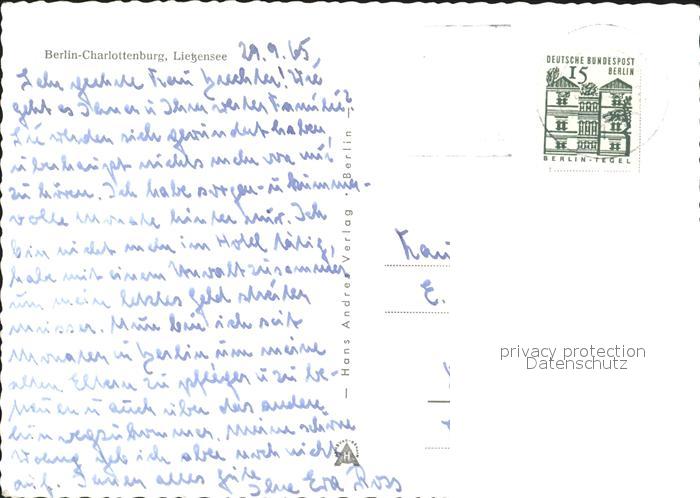 Berlin-Charlottenburg, Lietzensee 29.9.65
Sehr geehrte Frau Brechter! Wie
geht es Ihnen u. Ihrer werten Familie?
Sie werden sich gewundert haben,
überhaupt nichts mehr von mir
zu hören. Ich habe sorgen- u. kummer-
volle Monate hinter mir. Ich
bin nicht mehr im Hotel tätig,
habe mit einem Anwalt zusammen
um mein letztes Geld streiten
müssen. Nun bin ich seit
Monaten in Berlin um meine
alten Eltern zu pflegen u. zu be-
treuen u. auch über das andere
hinwegzukommen. Meine schöne
Wohng geb ich aber noch nicht
auf. Ihnen alles gute
Ihre Eva Ross
— Hans Andres Verlag · Berlin —
DEUTSCHE BUNDESPOST
15 BERLIN
BERLIN-TEGEL
E.
privacy protection
Datenschutz